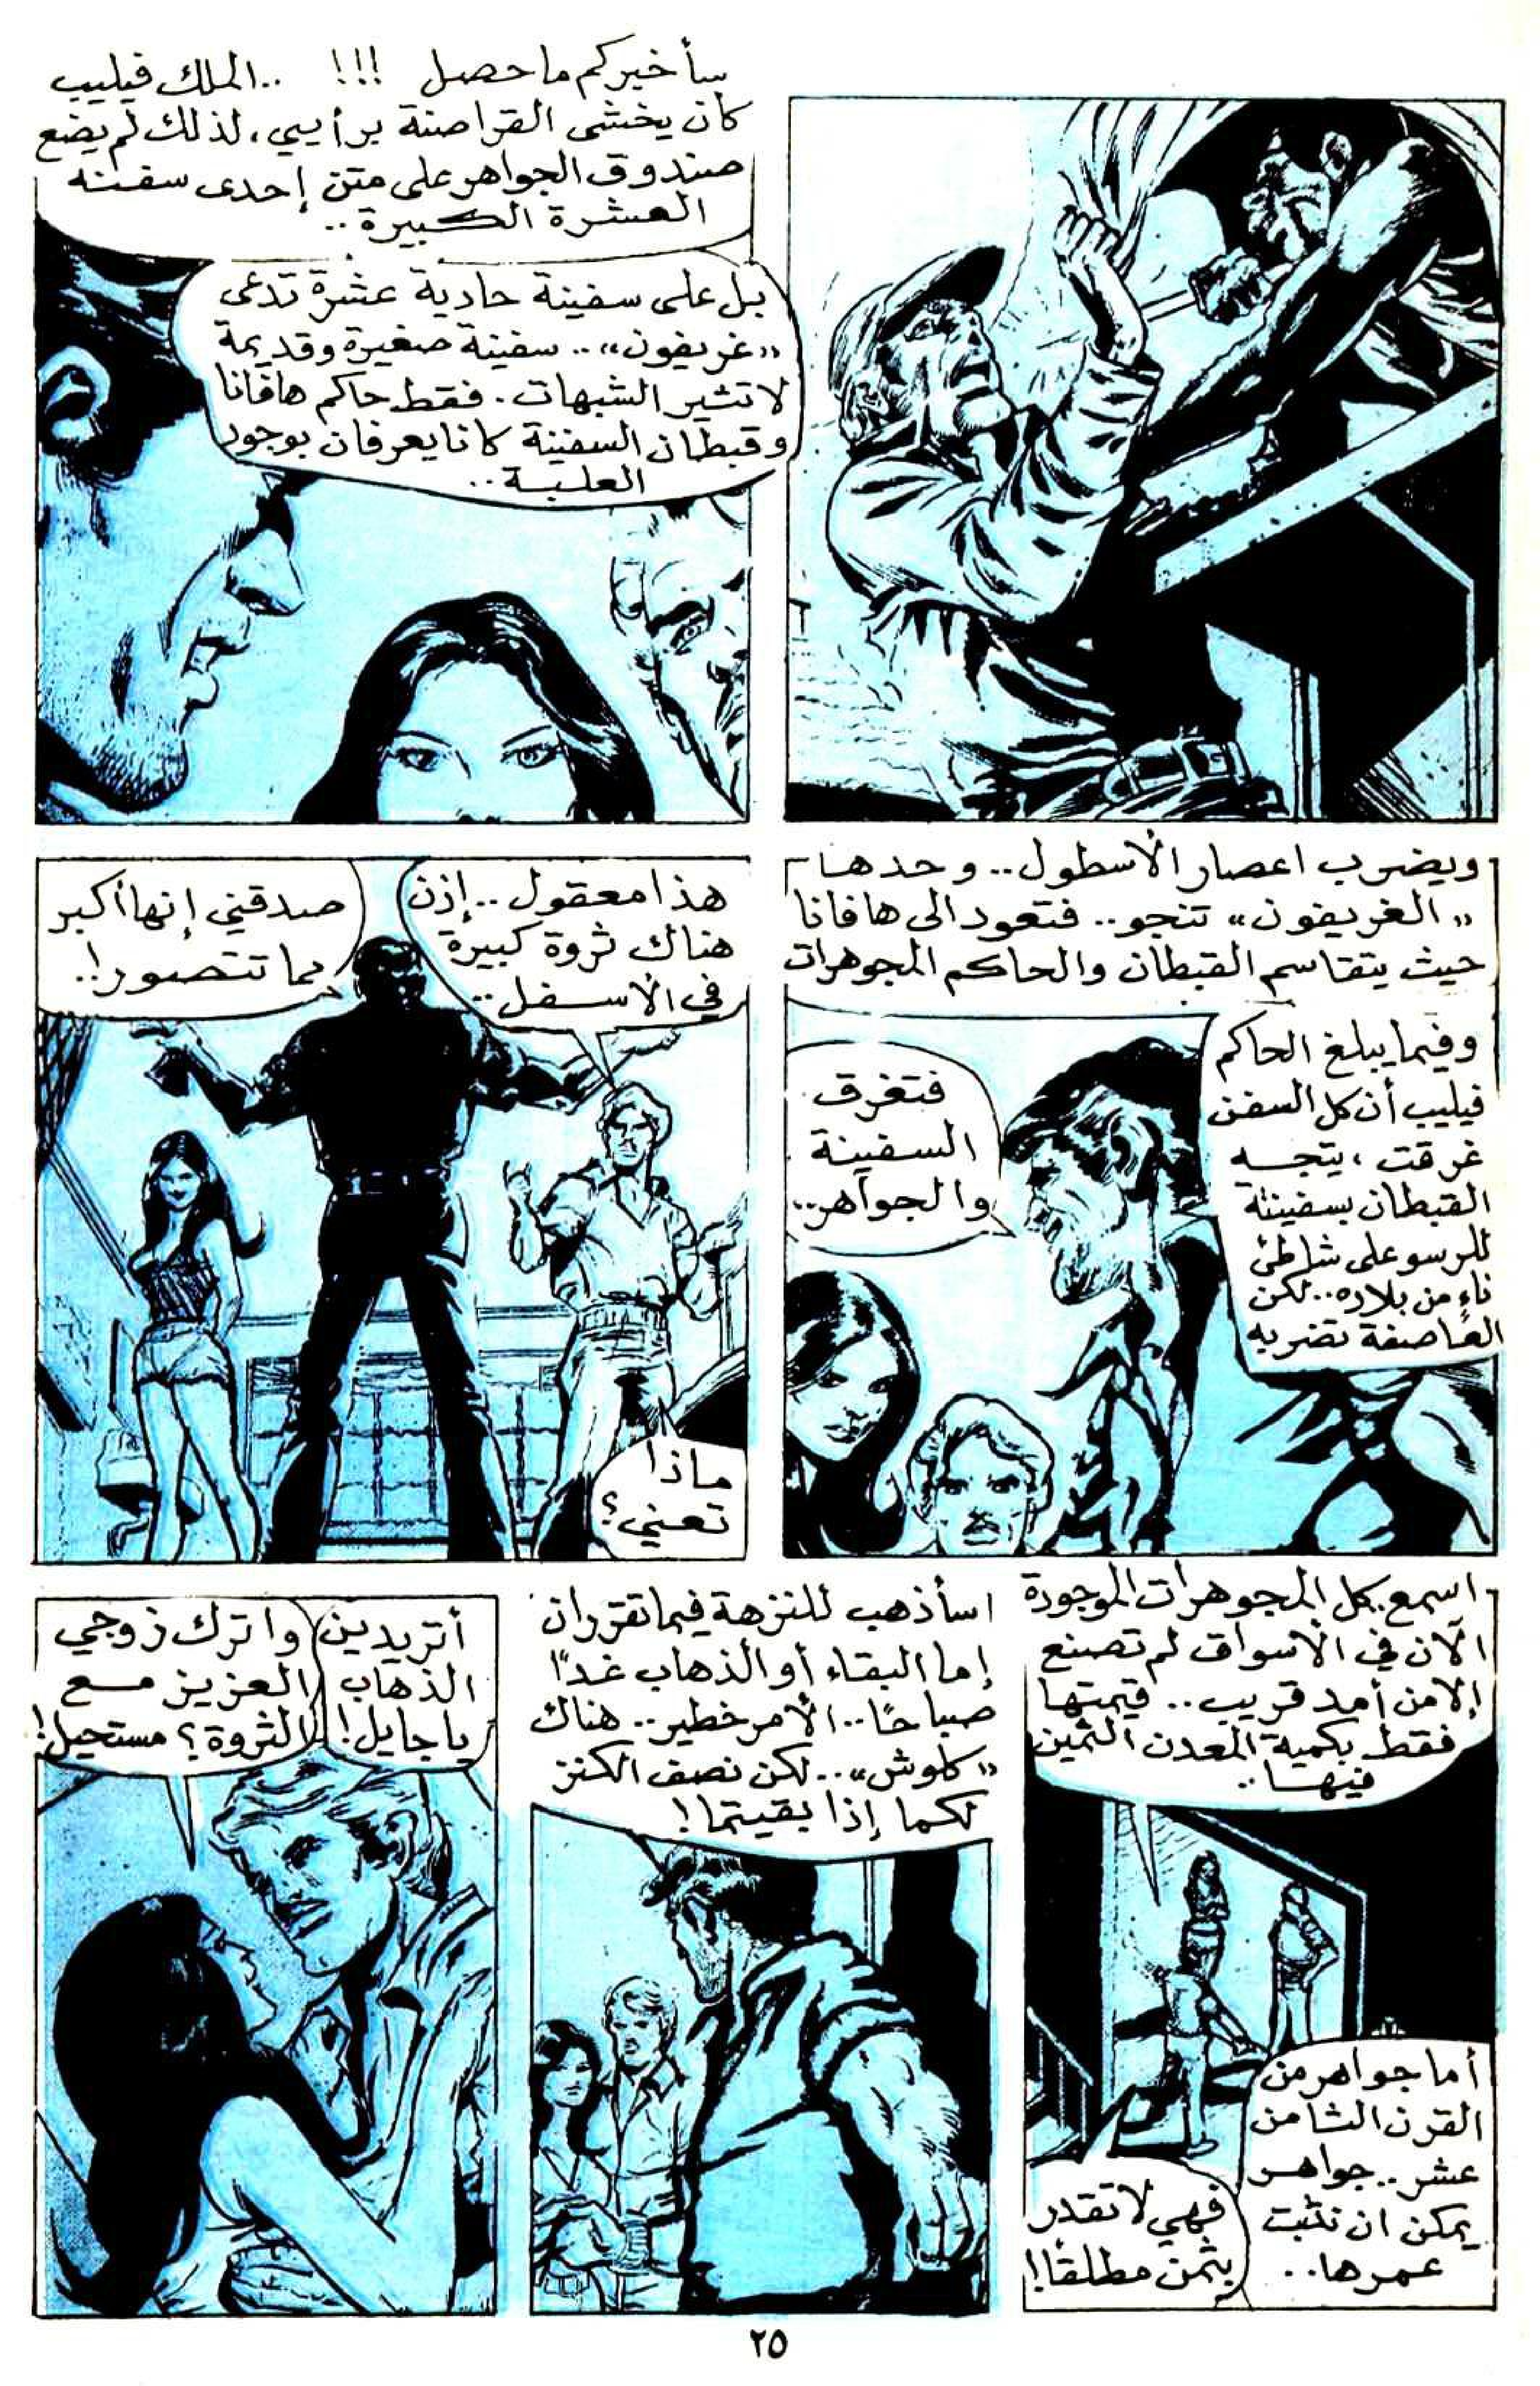 سأخبركم ما حصل !!! ..الملك فيليب
كان يخشى القراصنة برأيي، لذلك لم يضع
صندوق الجواهر على متن إحدى سفنه
العشرة الكبيرة..
بل على سفينة حادية عشرة تدعى
«غريفون».. سفينة صغيرة وقديمة
لا تثير الشبهات. فقط حاكم هافانا
وقبطان السفينة كانا يعرفان بوجود
العلبة..
ويضرب اعصار الأسطول.. وحدها
«الغريفون» تنجو.. فتعود الى هافانا
حيث يتقاسم القبطان والحاكم المجوهرات
وفيما يبلغ الحاكم
فيليب أن كل السفن
غرقت، يتجه
القبطان بسفينته
للرسو على شاطئ
ناءٍ من بلاده.. لكن
العاصفة تضربه
فتغرق
السفينة
والجواهر..
هذا معقول.. إذن
هناك ثروة كبيرة
في الأسفل..
صدقني إنها أكبر
مما تتصور!..
ماذا
تعني؟
اسمع. كل المجوهرات الموجودة
الآن في الأسواق لم تصنع
إلا من أمد قريب.. قيمتها
فقط بكمية المعدن الثمين
فيها..
أما جواهر من
القرن الثامن
عشر.. جواهر
يمكن ان نثبت
عمرها..
فهي لا تقدر
بثمن مطلقًا!
سأذهب للنزهة فيما تقرران
إما البقاء أو الذهاب غدًا
صباحًا.. الأمر خطير.. هناك
«كلوش».. لكن نصف الكنز
لكما إذا بقيتما!
أتريدين
الذهاب
يا جايل!
واترك زوجي
العزيز مع
الثروة؟ مستحيل!
٢٥